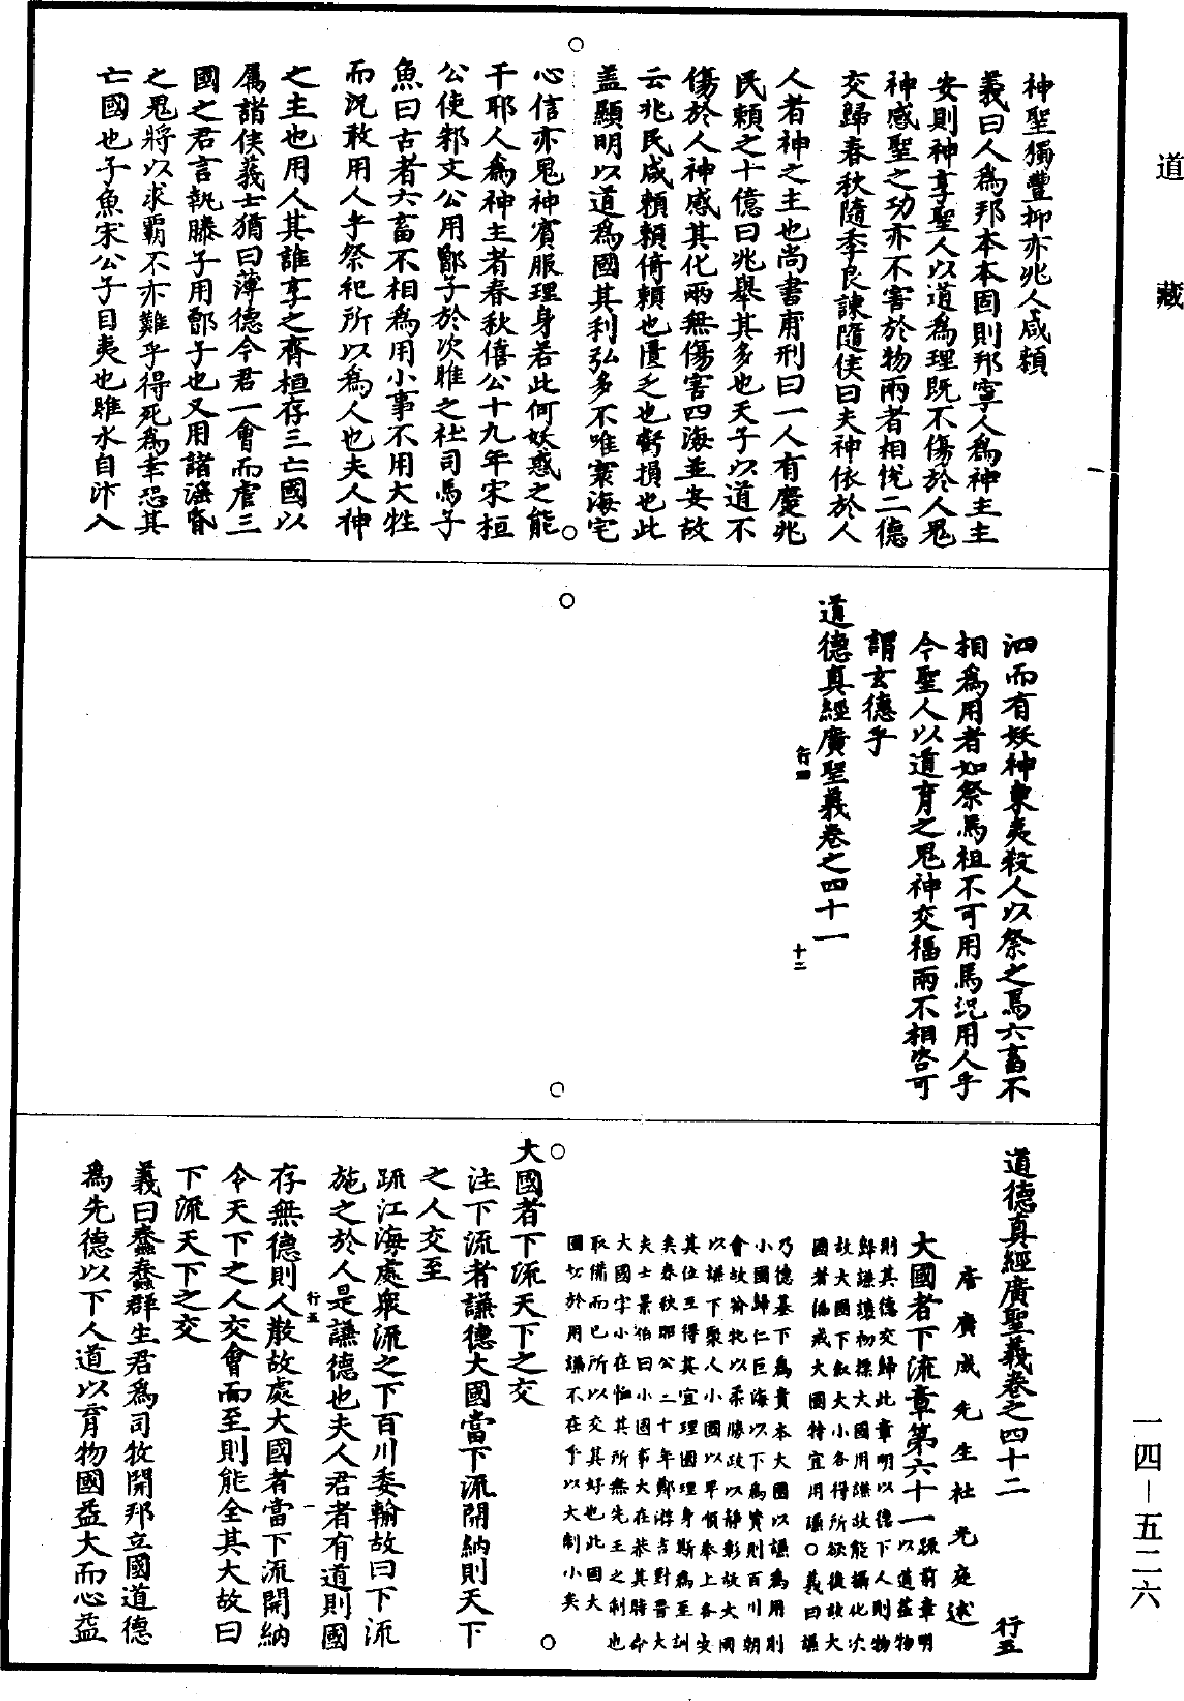 道藏
神聖獨豐抑亦兆人咸賴
義曰人爲邦本本固則邦寧人爲神主主
安則神享聖人以道爲理既不傷於人鬼
神感聖之功亦不害於物兩者相悅二德
交歸春秋隨季良諫隨侯曰夫神依於人
人者神之主也尚書甫刑曰一人有慶兆
民賴之十億曰兆舉其多也天子以道不
傷於人神感其化兩無傷害四海並安故
云兆民咸賴賴倚賴也匱乏也虧損也此
蓋顯明以道爲國其利弘多不唯寰海宅
心信亦鬼神賓服理身若此何妖惑之能
干耶人爲神主者春秋僖公十九年宋桓
公使邾文公用鄫子於次睢之社司馬子
魚曰古者六畜不相爲用小事不用大牲
而況敢用人乎祭祀所以爲人也夫人神
之主也用人其誰享之齊桓存三亡國以
屬諸侯義士猶曰薄德今君一會而虐三
國之君言執滕子用鄫子也又用諸淫昏
之鬼將以求霸不亦難乎得死爲幸恐其
亡國也子魚宋公子目夷也睢水自汴入
泗而有妖神東夷殺人以祭之焉六畜不
相爲用者如祭馬祖不可用馬況用人乎
今聖人以道育之鬼神交福兩不相咎可
謂玄德乎
道德真經廣聖義卷之四十一
行四
十二
道德真經廣聖義卷之四十二
行五
唐廣成先生杜光庭述
大國者下流章第六十一
疏前章明
以道蒞物
則其德交歸此章明以德下人則物
歸謙讓初標大國用謙故能攝化次
故大國下叙大小各得所欲後故大
國者偏戒大國特宜用謙○義曰謙
乃德基下爲貴本大國以謙爲用則
小國歸仁巨海以下爲實則百川朝
會故前牝以柔勝政以靜彰故大國
以謙下聚人小國以卑傾奉上各安
其位至得其宜理國理身斯爲至訓
矣春秋昭公二十年鄭游吉對晋大
夫士景伯曰小國事大在恭其時命
大國字小在恤其所無先王之制也
取備而已所以交其好也此固大
國切於用謙不在乎以大制小矣
大國者下流天下之交
注下流者謙德大國當下流開納則天下
之人交至
疏江海處眾流之下百川委輸故曰下流
施之於人是謙德也夫人君者有道則國
行五
一
存無德則人散故處大國者當下流開納
令天下之人交會而至則能全其大故曰
下流天下之交
義曰蠢蠢群生君爲司牧開邦立國道德
爲先德以下人道以育物國益大而心益
一四－五二六